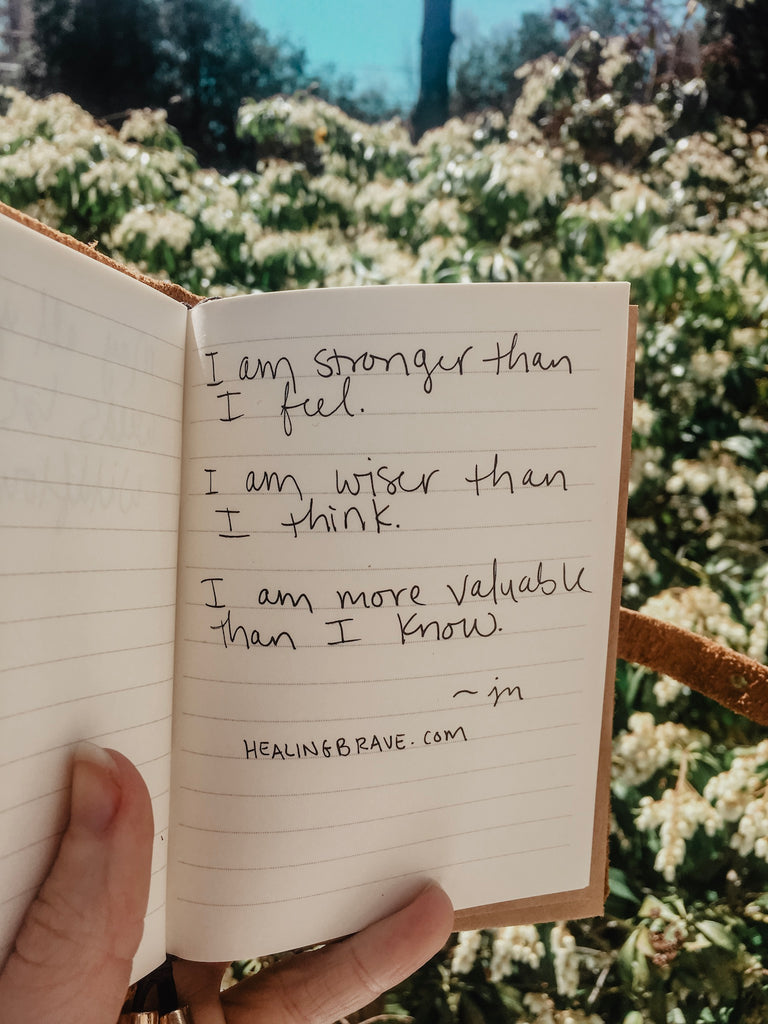 I am stronger than
I feel.
I am wiser than
I think.
I am more valuable
than I know.
~jn
HEALINGBRAVE.COM